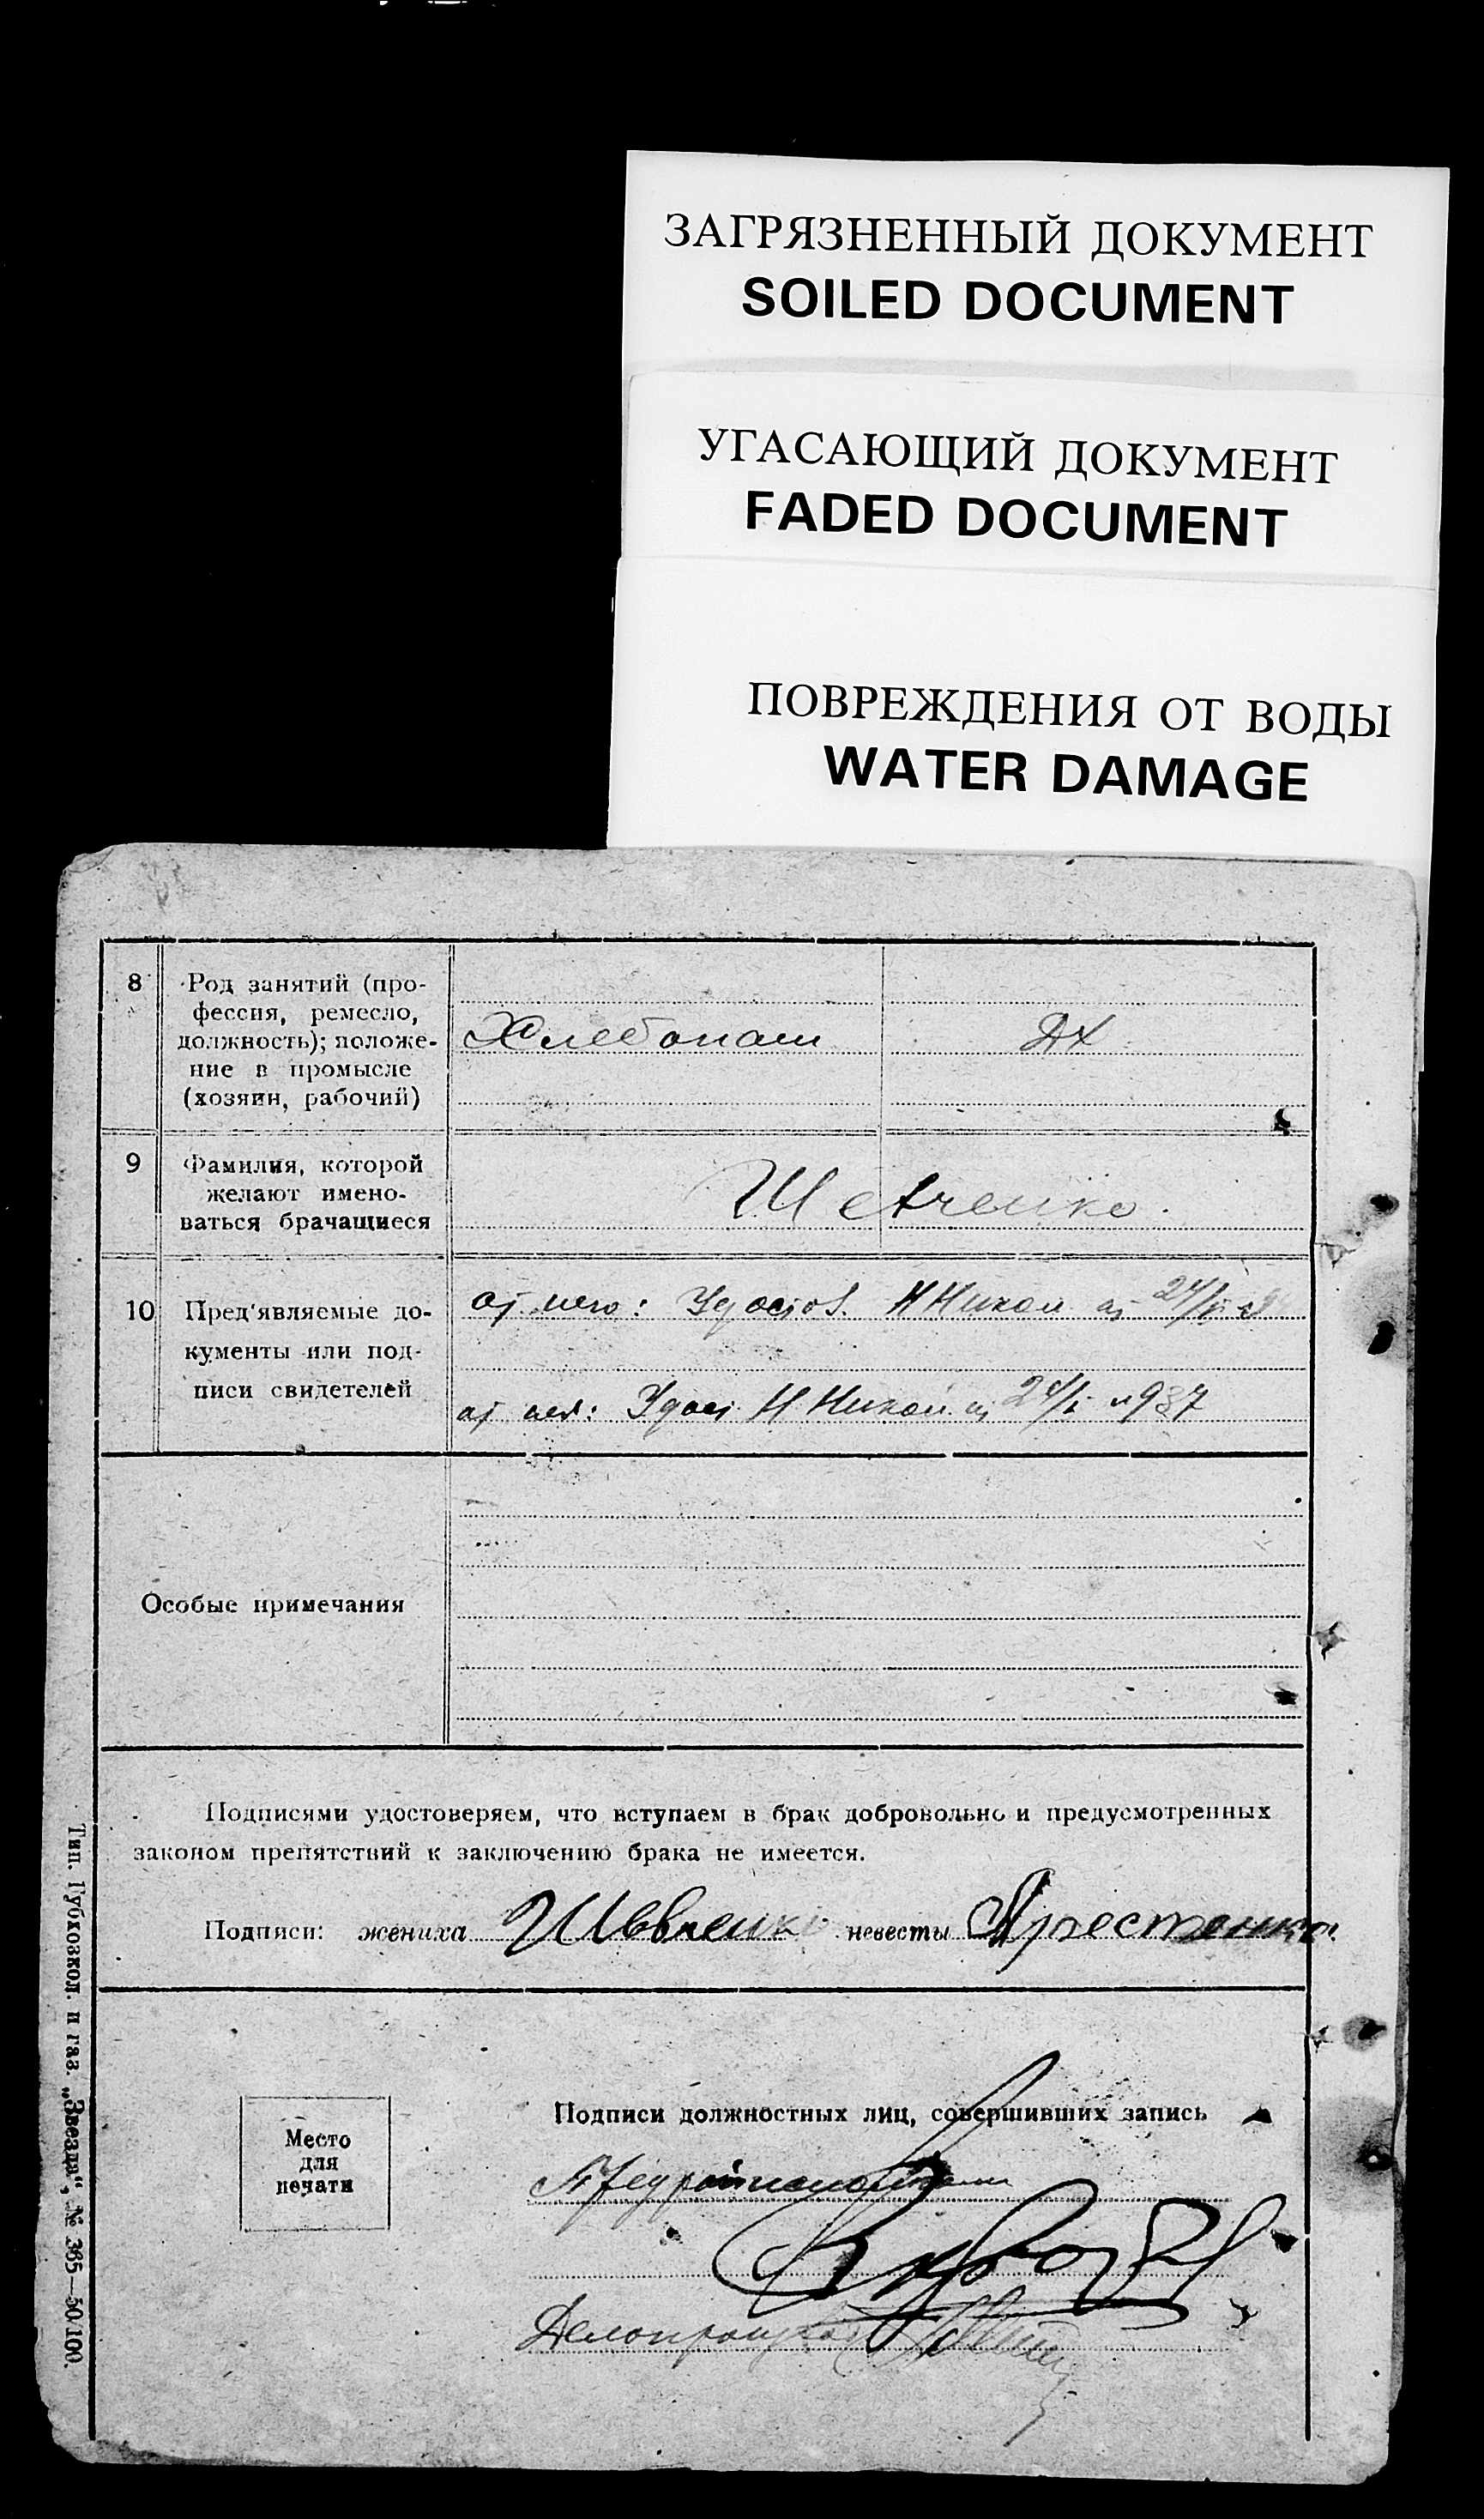 ЗАГРЯЗНЕННЫЙ ДОКУМЕНТ
SOILED DOCUMENT
УГАСАЮЩИЙ ДОКУМЕНТ
FADED DOCUMENT
ПОВРЕЖДЕНИЯ ОТ ВОДЫ
WATER DAMAGE
8 Род занятий (про-
фессия, ремесло,
должность); положе-
ние в промысле
(хозяин, рабочий)
Хлебопаш ДХ
9 Фамилия, которой
желают имено-
ваться брачащиеся
Шевченко
10 Пред'являемые до-
кументы или под-
писи свидетелей
от него: Удостов. Н Никол от 24/I
от нея: Удост Н Никол 24/I
Особые примечания
Подписями удостоверяем, что вступаем в брак добровольно и предусмотренных
законом препятствий к заключению брака не имеется.
Подписи: жениха невесты
Место
для
печати
Подписи должностных лиц, совершивших запись
Тип. Губхозкол. п газ. „Звезда“, № 365—50/100.